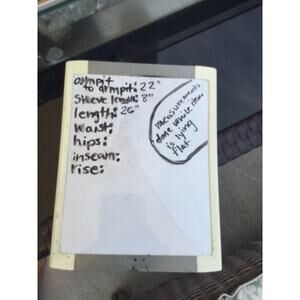 armpit
to armpit: 22"
sleeve length: 8"
length: 26"
waist:
hips:
inseam:
rise:
measurements
done while item
is lying
flat